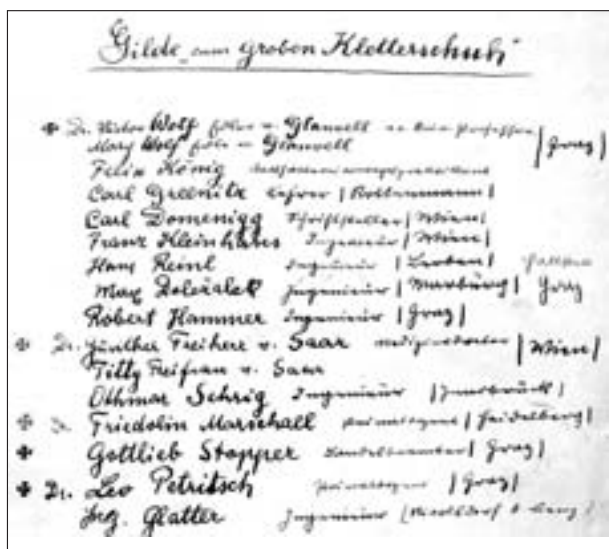 Gilde „zum groben Kletterschuh“
Dr. Victor Wolf Edler v. Glanvell
Mary Wolf Edle v. Glanvell | Graz |
Felix König
Carl Greenitz Lehrer | Rottenmann |
Carl Domenigg Schriftsteller | Wien |
Franz Kleinhans Ingenieur | Wien |
Hans Reinl Ingenieur | Leoben |
Max Ingenieur | Marburg | Graz
Robert Hammer Ingenieur | Graz |
Dr. Günther Freiherr v. Saar | Wien |
Titty Freifrau v. Saar
Othmar Sehrig Ingenieur | Innsbruck |
Dr. Friedolin Marschall | Heidelberg |
Gottlieb Stopper Landesbeamter | Graz |
Dr. Leo Petritsch | Graz |
Ing. Glatter Ingenieur